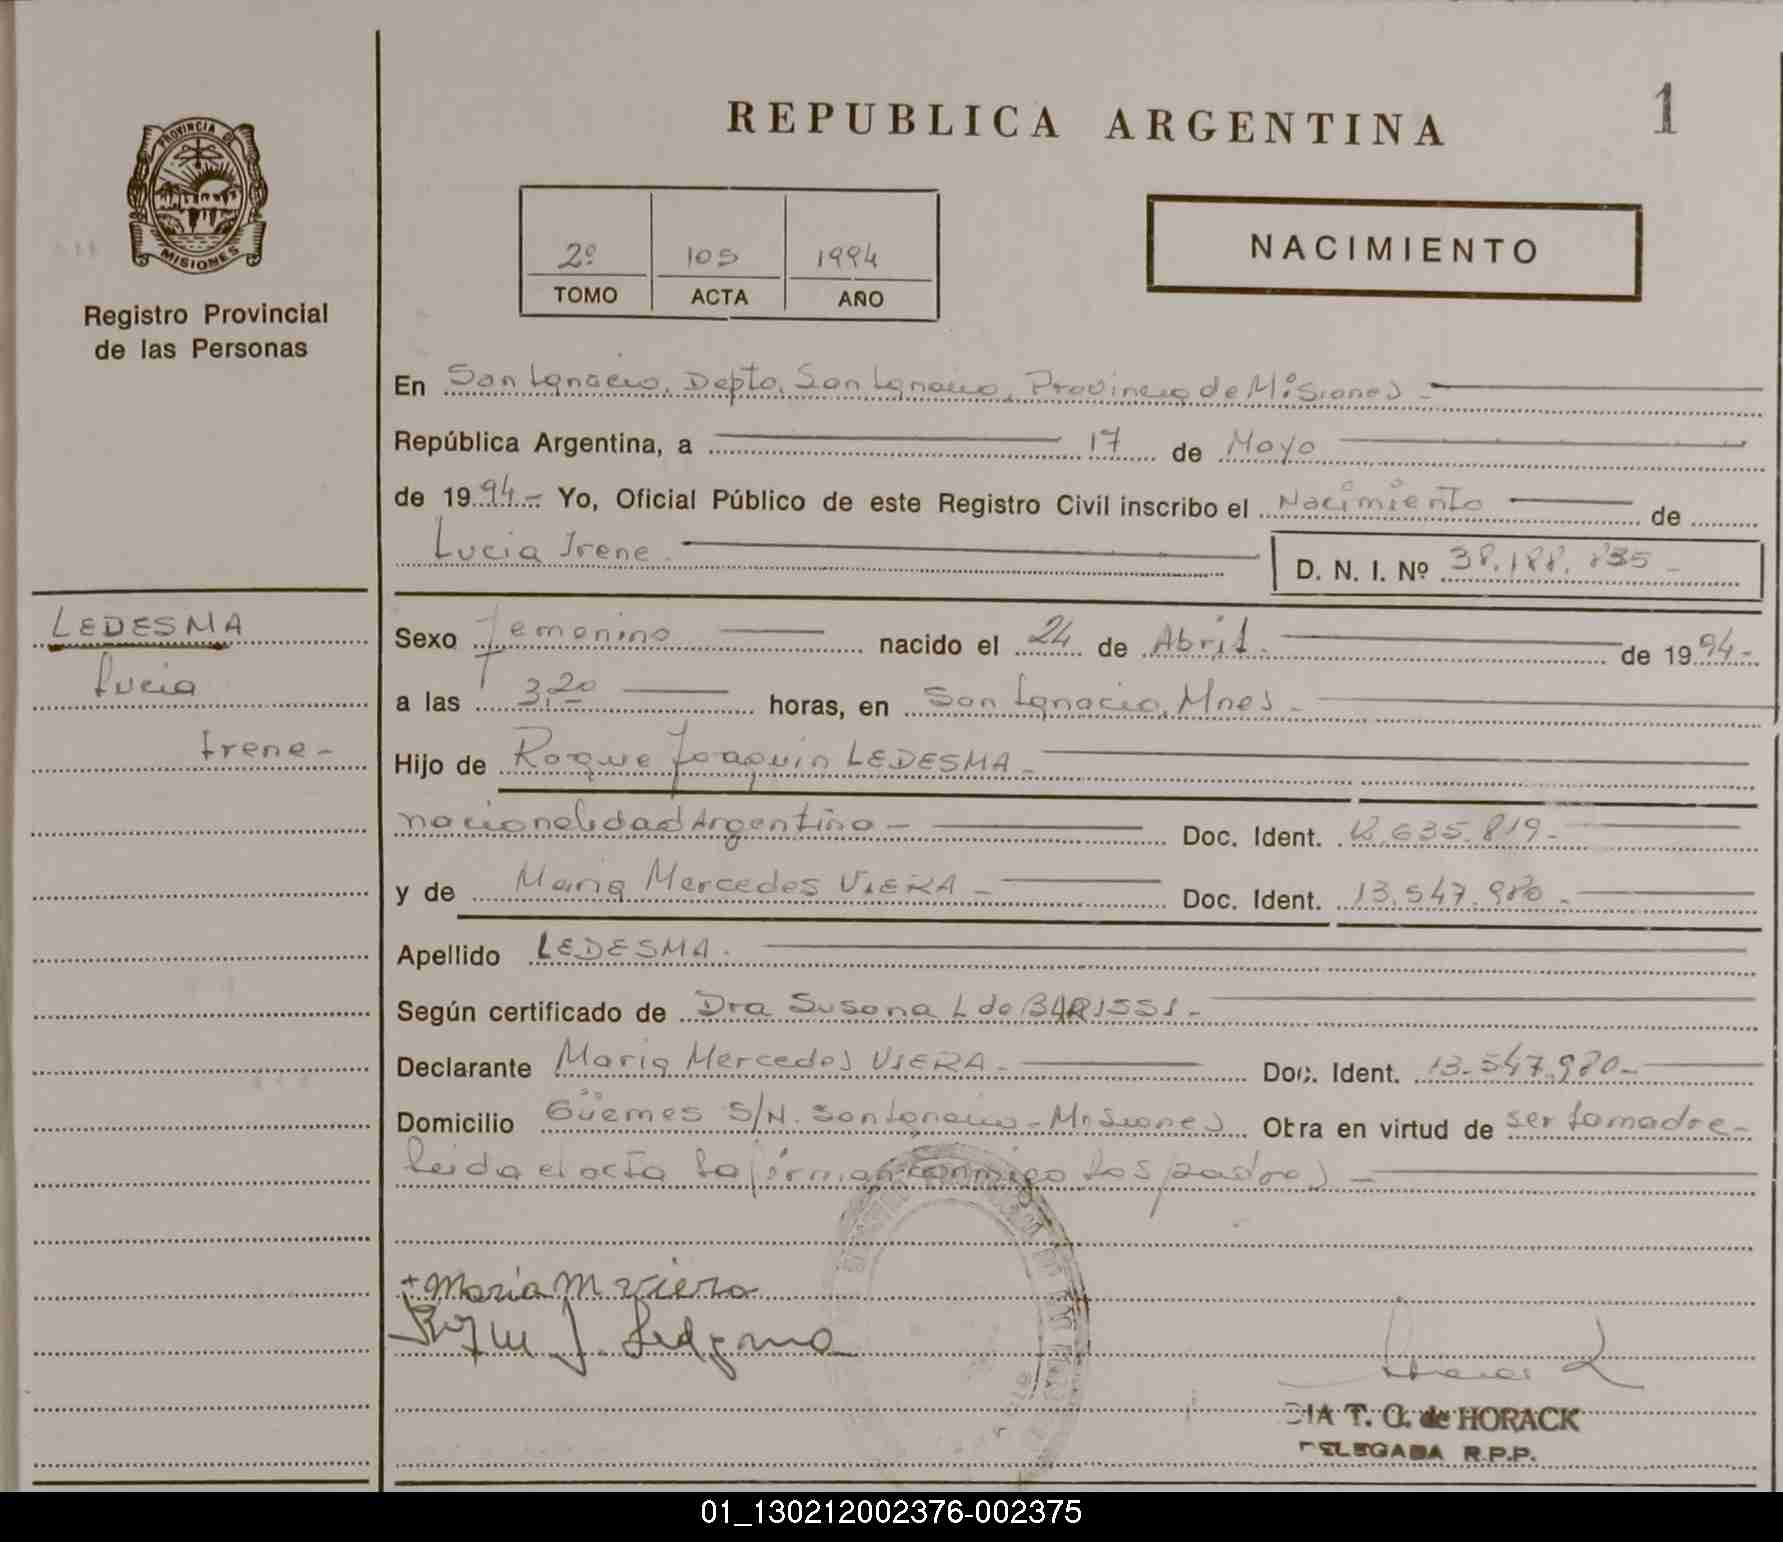 REPUBLICA ARGENTINA
1
PROVINCIA DE
MISIONES
Registro Provincial
de las Personas
2º 105 1994
TOMO ACTA AÑO
NACIMIENTO
En San Ignacio, Depto. San Ignacio, Provincia de Misiones -
República Argentina, a 17 de Mayo
de 1994.- Yo, Oficial Público de este Registro Civil inscribo el Nacimiento de
Lucia Irene. D. N. I. Nº 38.188.835 -
LEDESMA
Lucia
Irene -
Sexo Femenino nacido el 24 de Abril. de 1994-
a las 3,20 horas, en San Ignacio, Mnes -
Hijo de Roque Joaquin LEDESMA -
nacionalidad Argentina - Doc. Ident. 12.635.819-
y de Maria Mercedes VIERA - Doc. Ident. 13.547.980 -
Apellido LEDESMA.
Según certificado de Dra Susana L de BARISSI -
Declarante Maria Mercedes VIERA - Doc. Ident. 13.547.980-
Domicilio Güemes S/N. San Ignacio - Misiones Obra en virtud de ser la madre -
leida el acta la firman conmigo los padres -
+ Maria M Viera
Roque J. Ledesma
T. O. de HORACK
DELEGADA R.P.P.
01_130212002376-002375